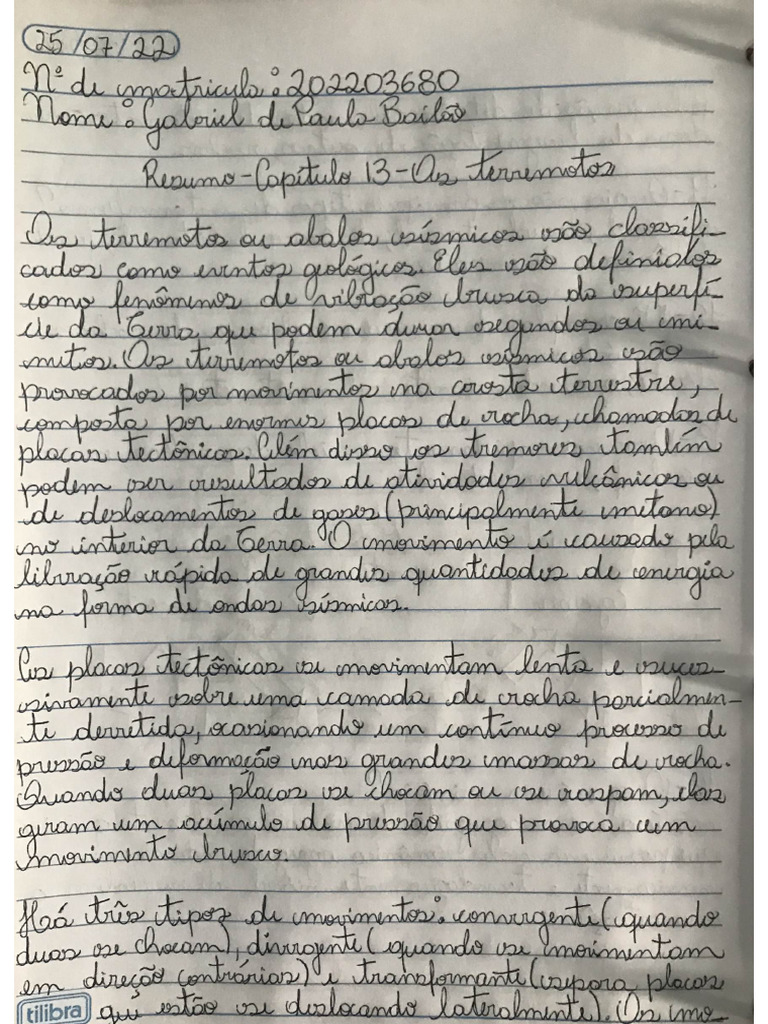 25/07/22
Nº de matricula: 202203680
Nome: Gabriel de Paula Bailão
Resumo - Capítulo 13 - Os terremotos
Os terremotos ou abalos sísmicos são classifi-
cados como eventos geológicos. Eles são definidos
como fenômenos de vibração brusca da superfí-
cie da Terra, que podem durar segundos ou mi-
nutos. Os terremotos ou abalos sísmicos são
provocados por movimentos na crosta terrestre,
composta por enormes placas de rocha, chamadas de
placas tectônicas. Além disso os tremores também
podem ser resultados de atividades vulcânicas ou
de deslocamentos de gases (principalmente metano)
no interior da Terra. O movimento é causado pela
libração rápida de grandes quantidades de energia
na forma de ondas sísmicas.
As placas tectônicas se movimentam lenta e suces-
sivamente sobre uma camada de rocha parcialmen-
te derretida, ocasionando um contínuo processo de
pressão e deformação nas grandes massas de rocha.
Quando duas placas se chocam ou se raspam, elas
geram um acúmulo de pressão que provoca um
movimento brusco.
Há três tipos de movimentos: convergente (quando
duas se chocam), divergente (quando se movimentam
em direção contrárias) e transformante (separa placas
que estão se deslocando lateralmente). Os mo-
tilibra